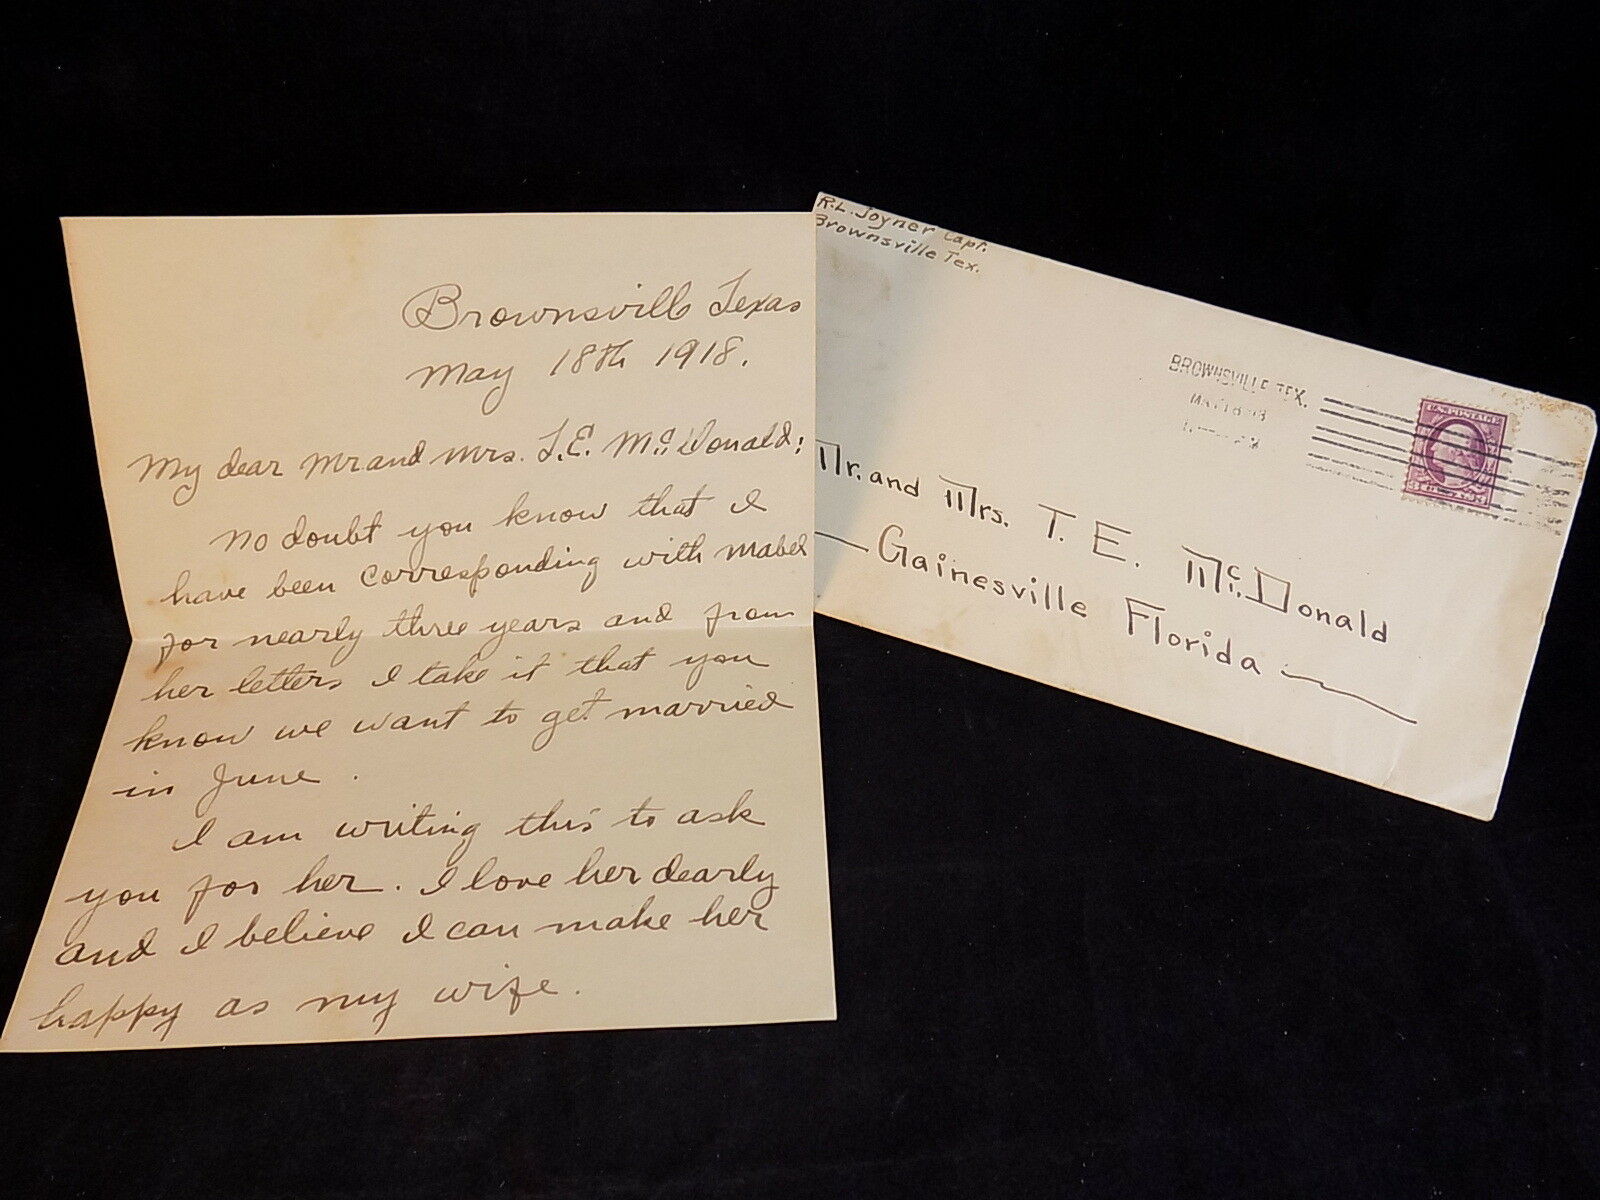 Brownsville Texas
May 18th 1918.
My dear Mr and Mrs. T.E. McDonald:
No doubt you know that I
have been corresponding with Mabel
for nearly three years and from
her letters I take it that you
know we want to get married
in June.
I am writing this to ask
you for her. I love her dearly
and I believe I can make her
happy as my wife.
R.L. Joyner Capt.
Brownsville Tex.
BROWNSVILLE TEX.
U.S. POSTAGE
Mr. and Mrs. T. E. McDonald
Gainesville Florida